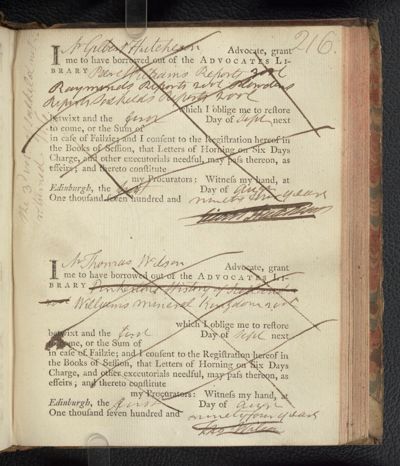 216.
I Mr Gilbert Hutcheson Advocate, grant
me to have borrowed out of the ADVOCATES LI-
BRARY Peere Williams Reports 3 vol
Raymonds Reports 2 vol Plowdens
Reports Reports 2 vol
which I oblige me to restore
betwixt and the first Day of Sept next
to come, or the Sum of
in case of Failzie; and I consent to the Registration hereof in
the Books of Session, that Letters of Horning on Six Days
Charge, and other executorials needful, may pass thereon, as
effeirs; and thereto constitute
my Procurators: Witness my hand, at
Edinburgh, the first Day of Augt
One thousand seven hundred and ninety four years
I Mr Thomas Wilson Advocate, grant
me to have borrowed out of the ADVOCATES LI-
BRARY Pinkertons History of Scotland
Williams mineral Kingdom 2 vol
which I oblige me to restore
betwixt and the first Day of Sept next
to come, or the Sum of
in case of Failzie; and I consent to the Registration hereof in
the Books of Session, that Letters of Horning on Six Days
Charge, and other executorials needful, may pass thereon, as
effeirs; and thereto constitute
my Procurators: Witness my hand, at
Edinburgh, the first Day of Augt
One thousand seven hundred and ninety four years
Tho Wilson